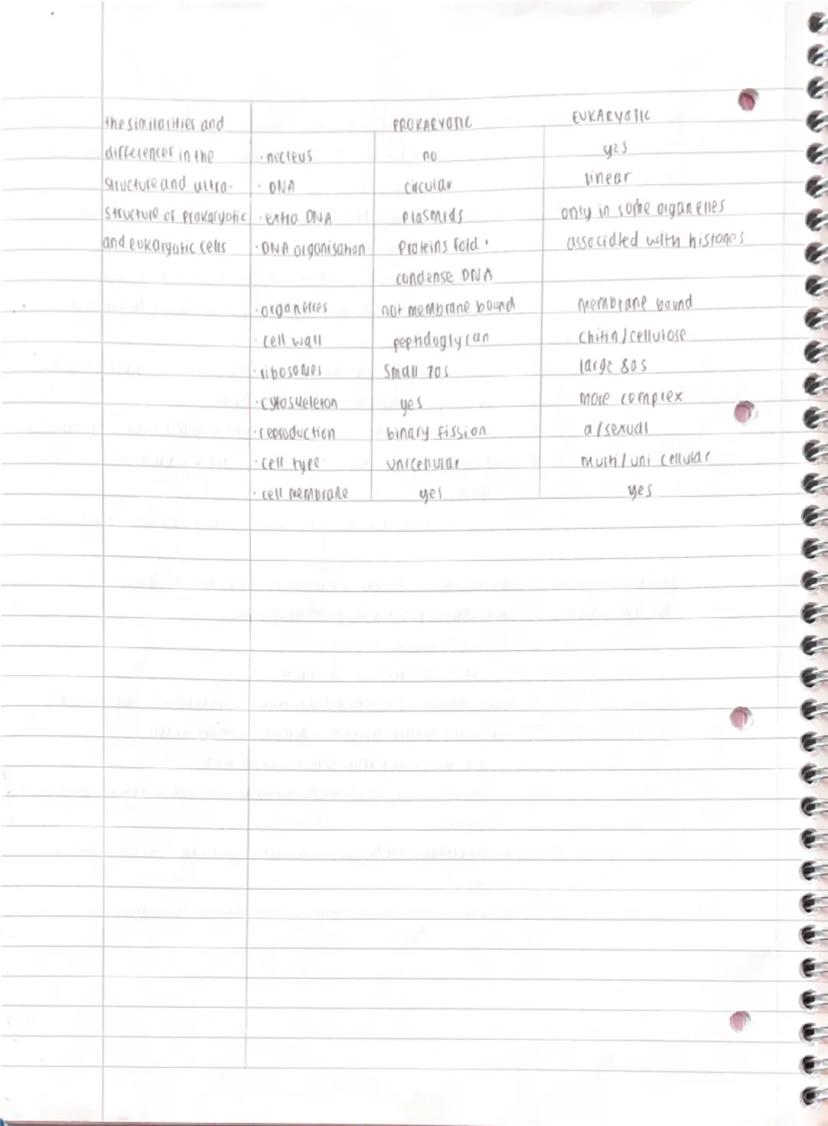 PROKARYOTIC EUKARYOTIC
the similarities and
differences in the · nucleus no yes
structure and ultra- · DNA circular linear
structure of prokaryotic · extra DNA plasmids only in some organelles
and eukaryotic cells · DNA organisation proteins fold + associated with histones
condense DNA
· organelles not membrane bound membrane bound
· cell wall peptidoglycan chitin/cellulose
· ribosomes small 70s large 80s
· cytoskeleton yes more complex
· reproduction binary fission a/sexual
· cell type unicellular multi/uni cellular
· cell membrane yes yes